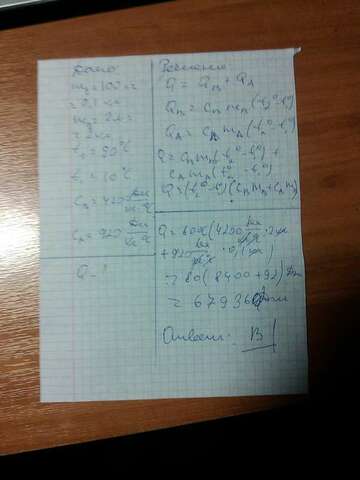 Дано
m₁ = 100 г
= 0,1 кг
m₂ = 2 л
= 2 кг
t₂ = 90°C
t₁ = 10°C
cв = 4200 Дж/кг·°C
cA = 920 Дж/кг·°C
Q - ?
Решение
Q = Qв + QA
Qв = cв mв (t₂° - t₁°)
QA = cA mA (t₂° - t₁°)
Q = cв mв (t₂° - t₁°) +
cA mA (t₂° - t₁°)
Q = (t₂° - t₁°)(cв mв + cA mA)
Q = 80°C (4200 Дж/кг·°C · 2 кг
+ 920 Дж/кг·°C · 0,1 кг)
= 80 (8400 + 92) Дж
= 679360 Дж
Ответ: В